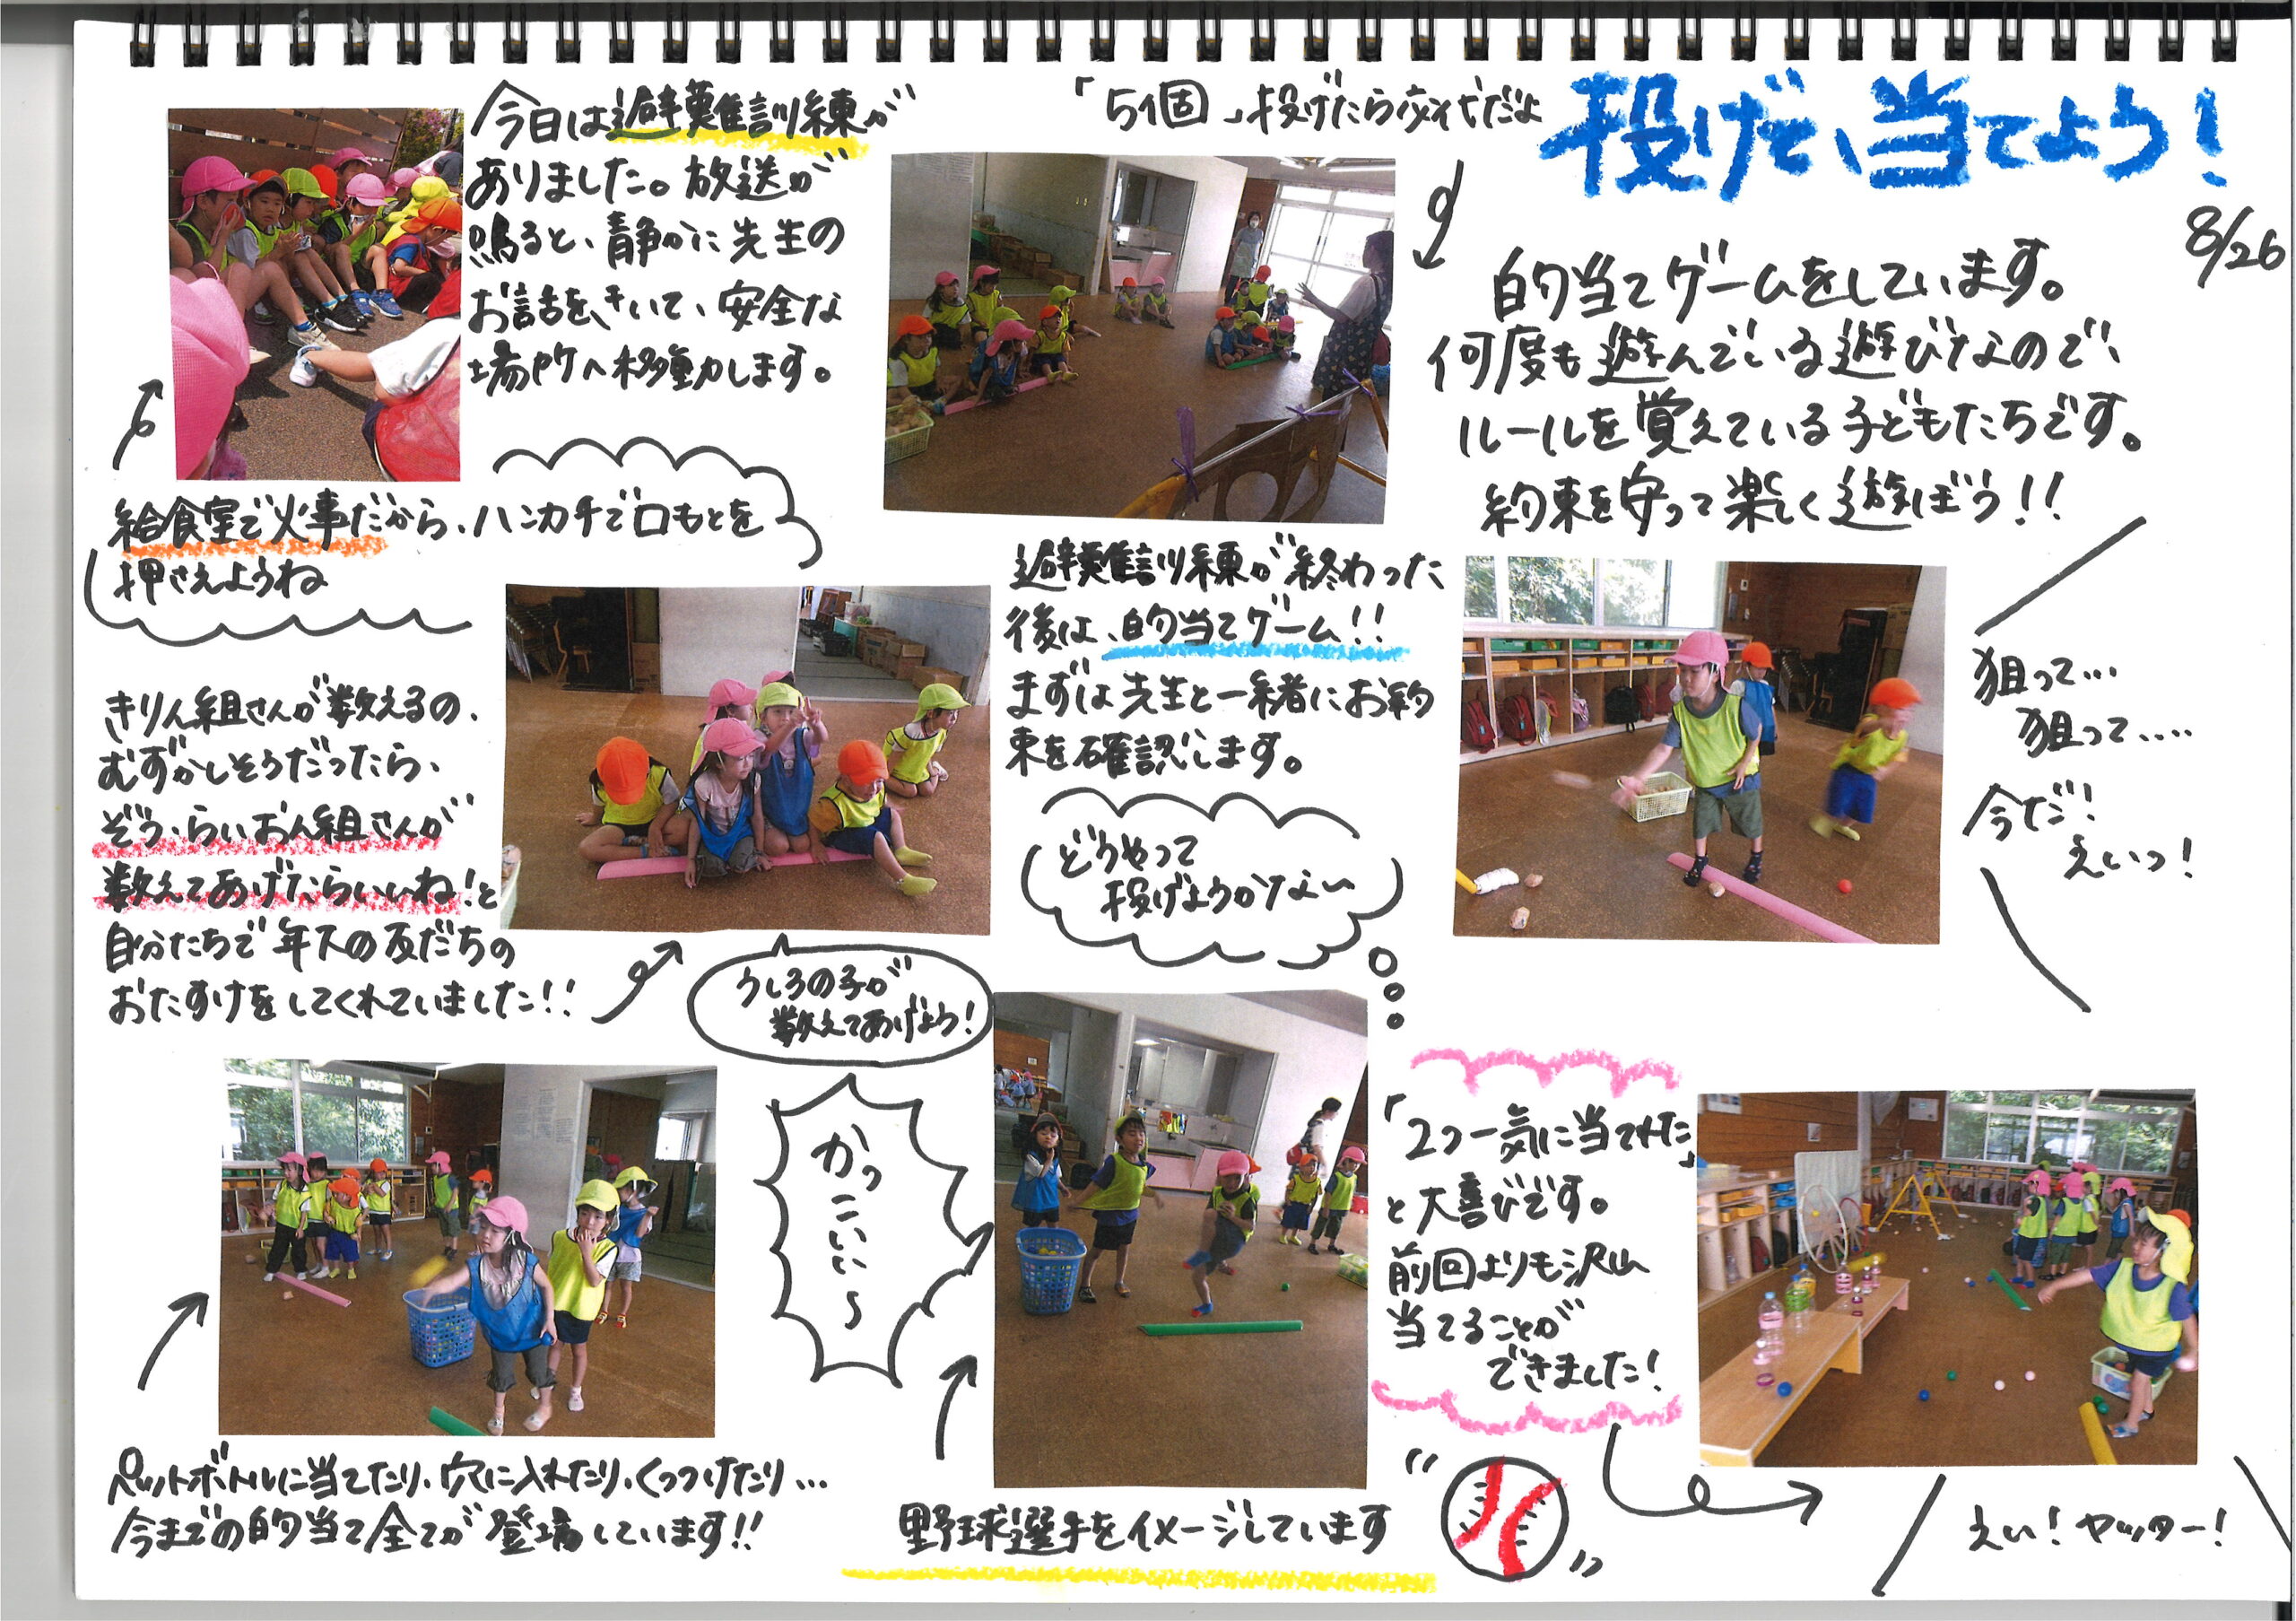 投げて、当てよう！
8/26
今日は避難訓練が
ありました。放送が
鳴ると、静かに先生の
お話をきいて、安全な
場所へ移動します。
給食室で火事だから、ハンカチで口もとを
押さえようね
「5個」投げたら交代だよ
的当てゲームをしています。
何度も遊んでいる遊びなので、
ルールを覚えている子どもたちです。
約束を守って楽しく遊ぼう!!
避難訓練が終わった
後は、的当てゲーム!!
まずは先生と一緒にお約
束を確認します。
どうやって
投げようかな〜
狙って…
狙って….
今だ！
えいっ！
きりん組さんが数えるの、
むずかしそうだったら、
ぞう、らいおん組さんが
数えてあげたらいいね！と
自分たちで年下の友だちの
おたすけをしてくれていました!!
うしろの子が
数えてあげよう！
かっこいい〜
ペットボトルに当てたり、穴に入れたり、くっつけたり…
今までの的当て全てが登場しています!!
野球選手をイメージしています
「2つ一気に当てれた」
と大喜びです。
前回よりも沢山
当てることが
できました！
えい！ヤッター！